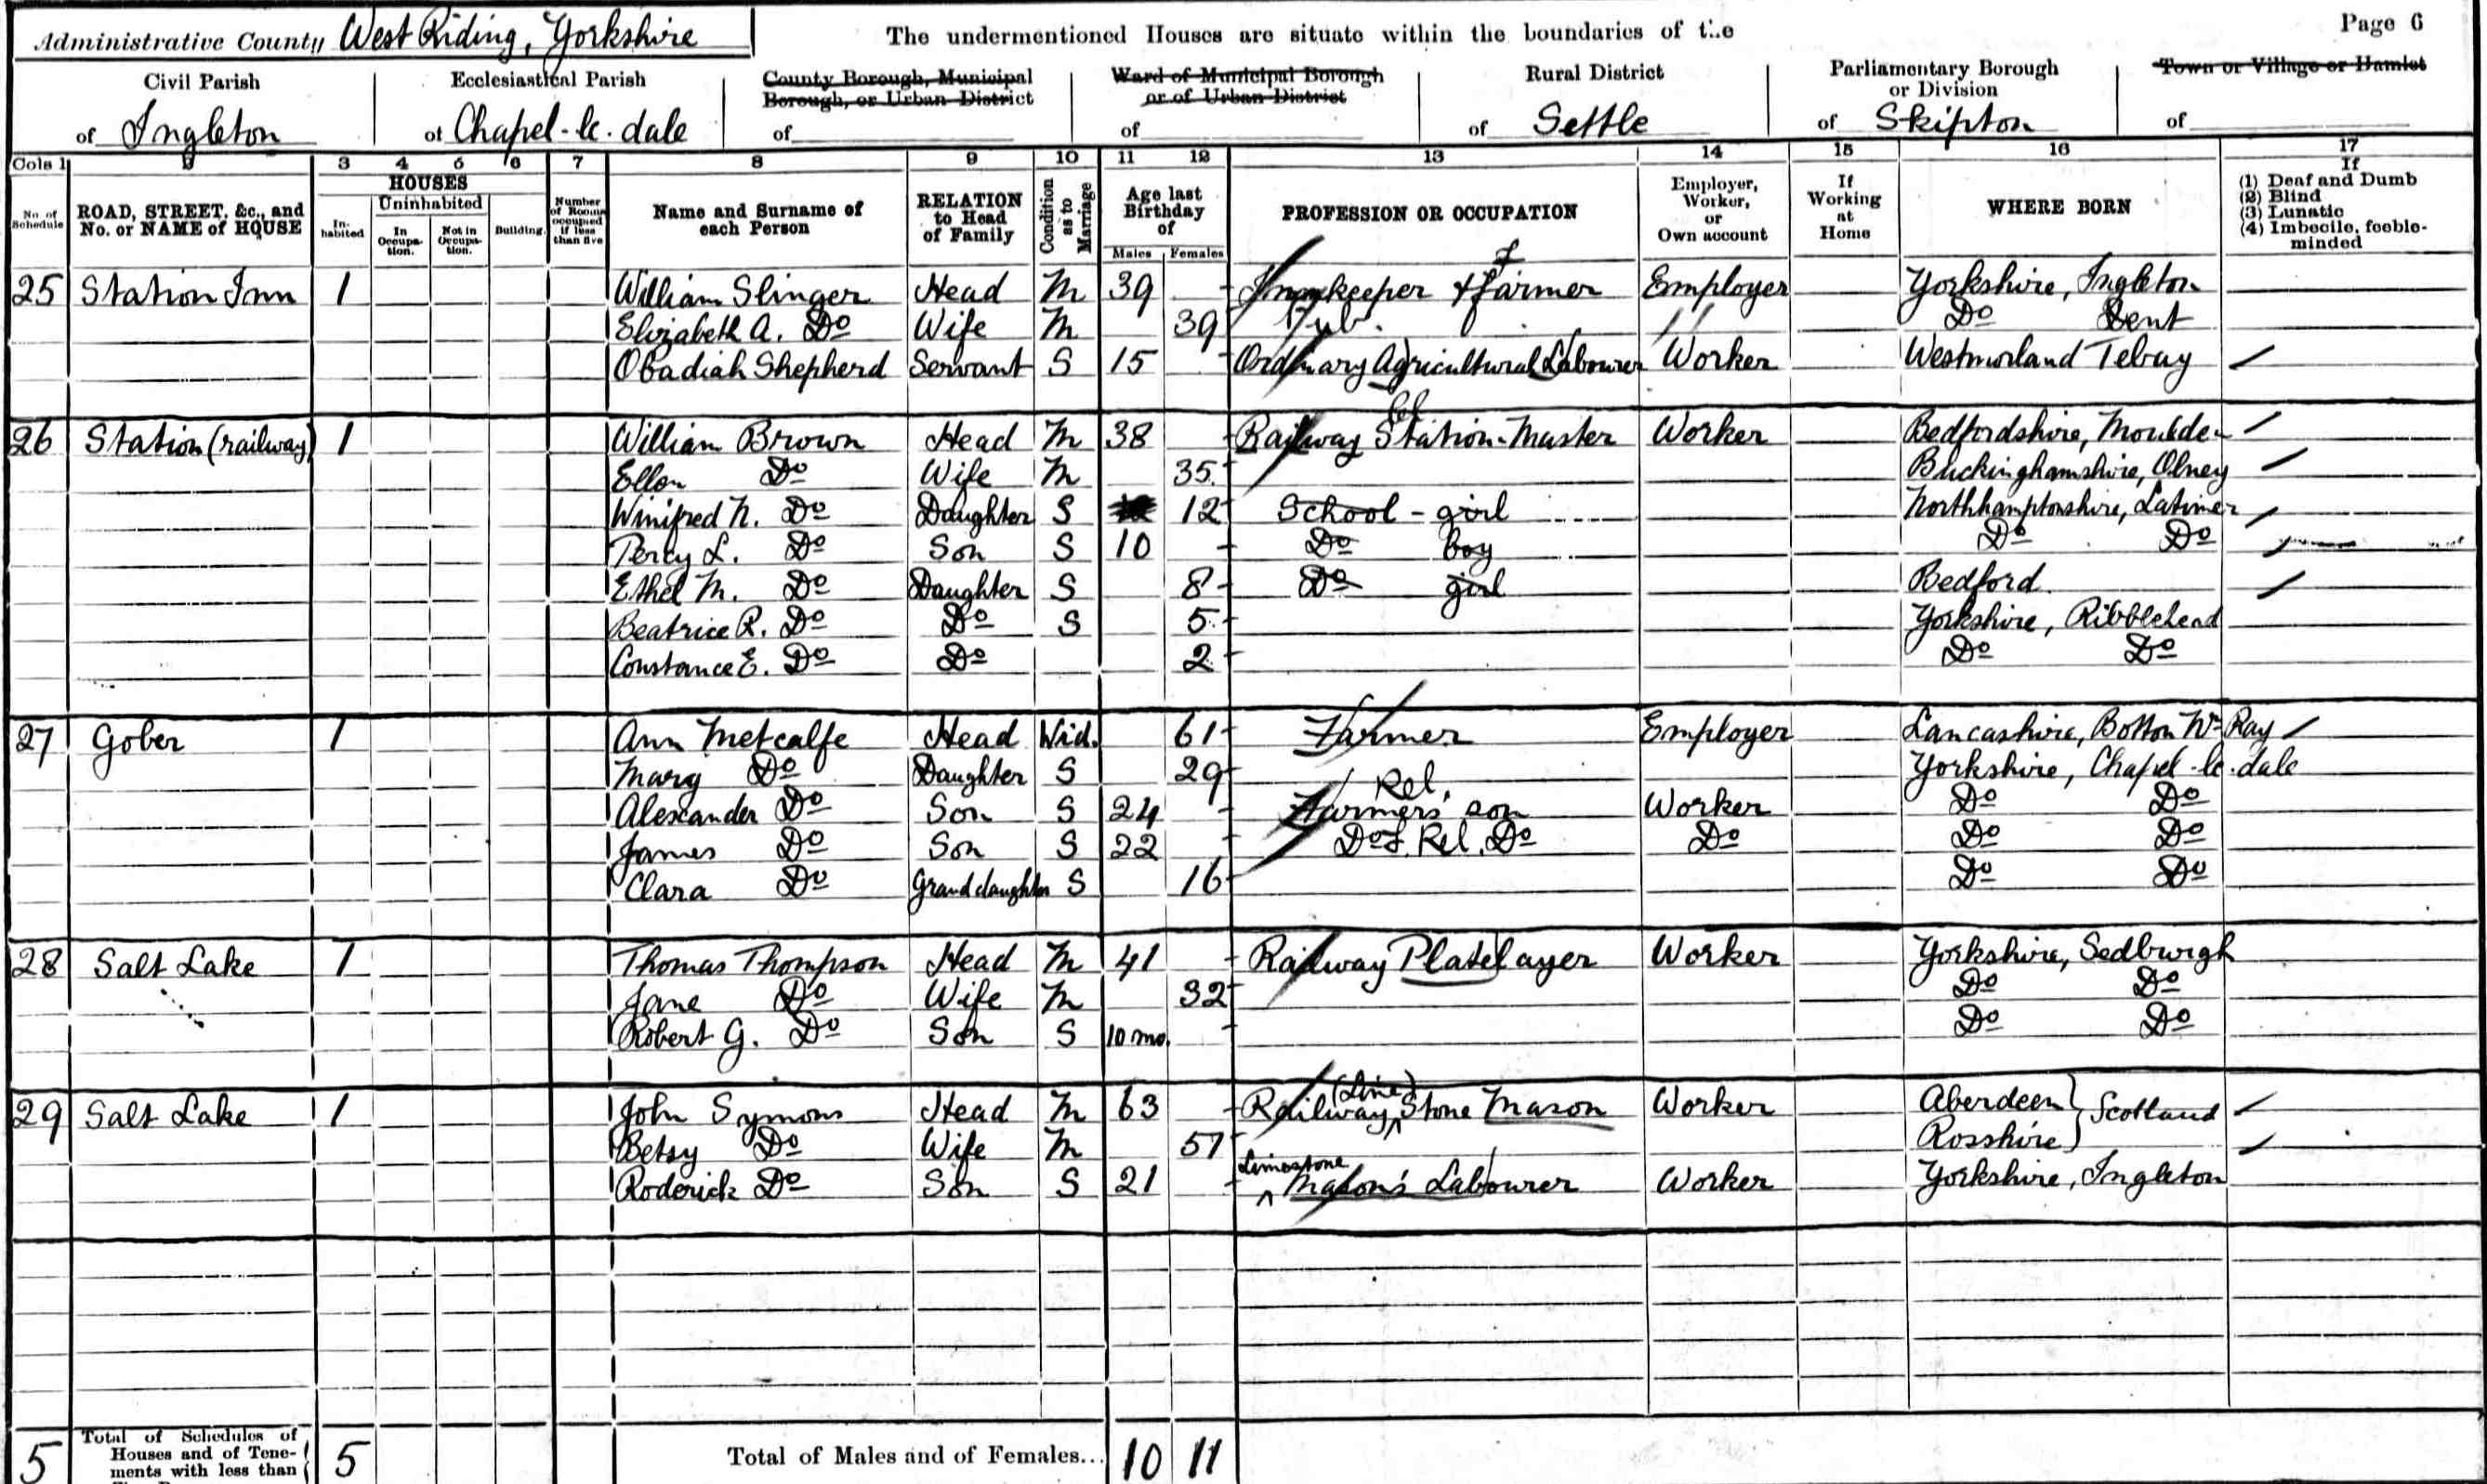 Administrative County West Riding, Yorkshire The undermentioned Houses are situate within the boundaries of the Page 6
Civil Parish Ecclesiastical Parish County Borough, Municipal Borough, or Urban District Ward of Municipal Borough or of Urban District Rural District Parliamentary Borough or Division Town or Village or Hamlet
of Ingleton of Chapel-le-dale of of of Settle of Skipton of
Cols 1 2 3 4 5 6 7 8 9 10 11 12 13 14 15 16 17
No. of Schedule ROAD, STREET, &c., and No. or NAME of HOUSE HOUSES Inhabited Uninhabited In Occupation. Not in Occupation. Building. Number of Rooms occupied if less than five Name and Surname of each Person RELATION to Head of Family Condition as to Marriage Age last Birthday of Males Females PROFESSION OR OCCUPATION Employer, Worker, or Own account If Working at Home WHERE BORN If (1) Deaf and Dumb (2) Blind (3) Lunatic (4) Imbecile, feeble-minded
25 Station Inn 1 William Slinger Head M 39 Innkeeper & Farmer Employer Yorkshire, Ingleton
Elizabeth A. Do Wife M 39 Pub. Do Dent
Obadiah Shepherd Servant S 15 Ordinary Agricultural Labourer Worker Westmorland Tebay
26 Station (railway) 1 William Brown Head M 38 Railway Station-Master Worker Bedfordshire,
Ellen Do Wife M 35 Buckinghamshire, Olney
Winifred N. Do Daughter S 12 School-girl Northhamptonshire, Latimer
Percy L. Do Son S 10 Do boy Do Do
Ethel M. Do Daughter S 8 Do girl Bedford
Beatrice R. Do Do S 5 Yorkshire, Ribblehead
Constance E. Do Do 2 Do Do
27 Gober 1 Ann Metcalfe Head Wid. 61 Farmer Employer Lancashire, Botton Wn Ray
Mary Do Daughter S 29 Yorkshire, Chapel-le-dale
Alexander Do Son S 24 Rel. Farmers' son Worker Do Do
James Do Son S 22 Do F. Rel. Do Do Do Do
Clara Do Grand daughter S 16 Do Do
28 Salt Lake 1 Thomas Thompson Head M 41 Railway Platelayer Worker Yorkshire, Sedburgh
Jane Do Wife M 32 Do Do
Robert G. Do Son S 10 mo. Do Do
29 Salt Lake 1 John Symons Head M 63 Railway (Line) Stone Mason Worker Aberdeen } Scotland
Betsy Do Wife M 57 Rosshire }
Roderick Do Son S 21 Limestone Mason's Labourer Worker Yorkshire, Ingleton
5 Total of Schedules of Houses and of Tenements with less than 5 Total of Males and of Females... 10 11